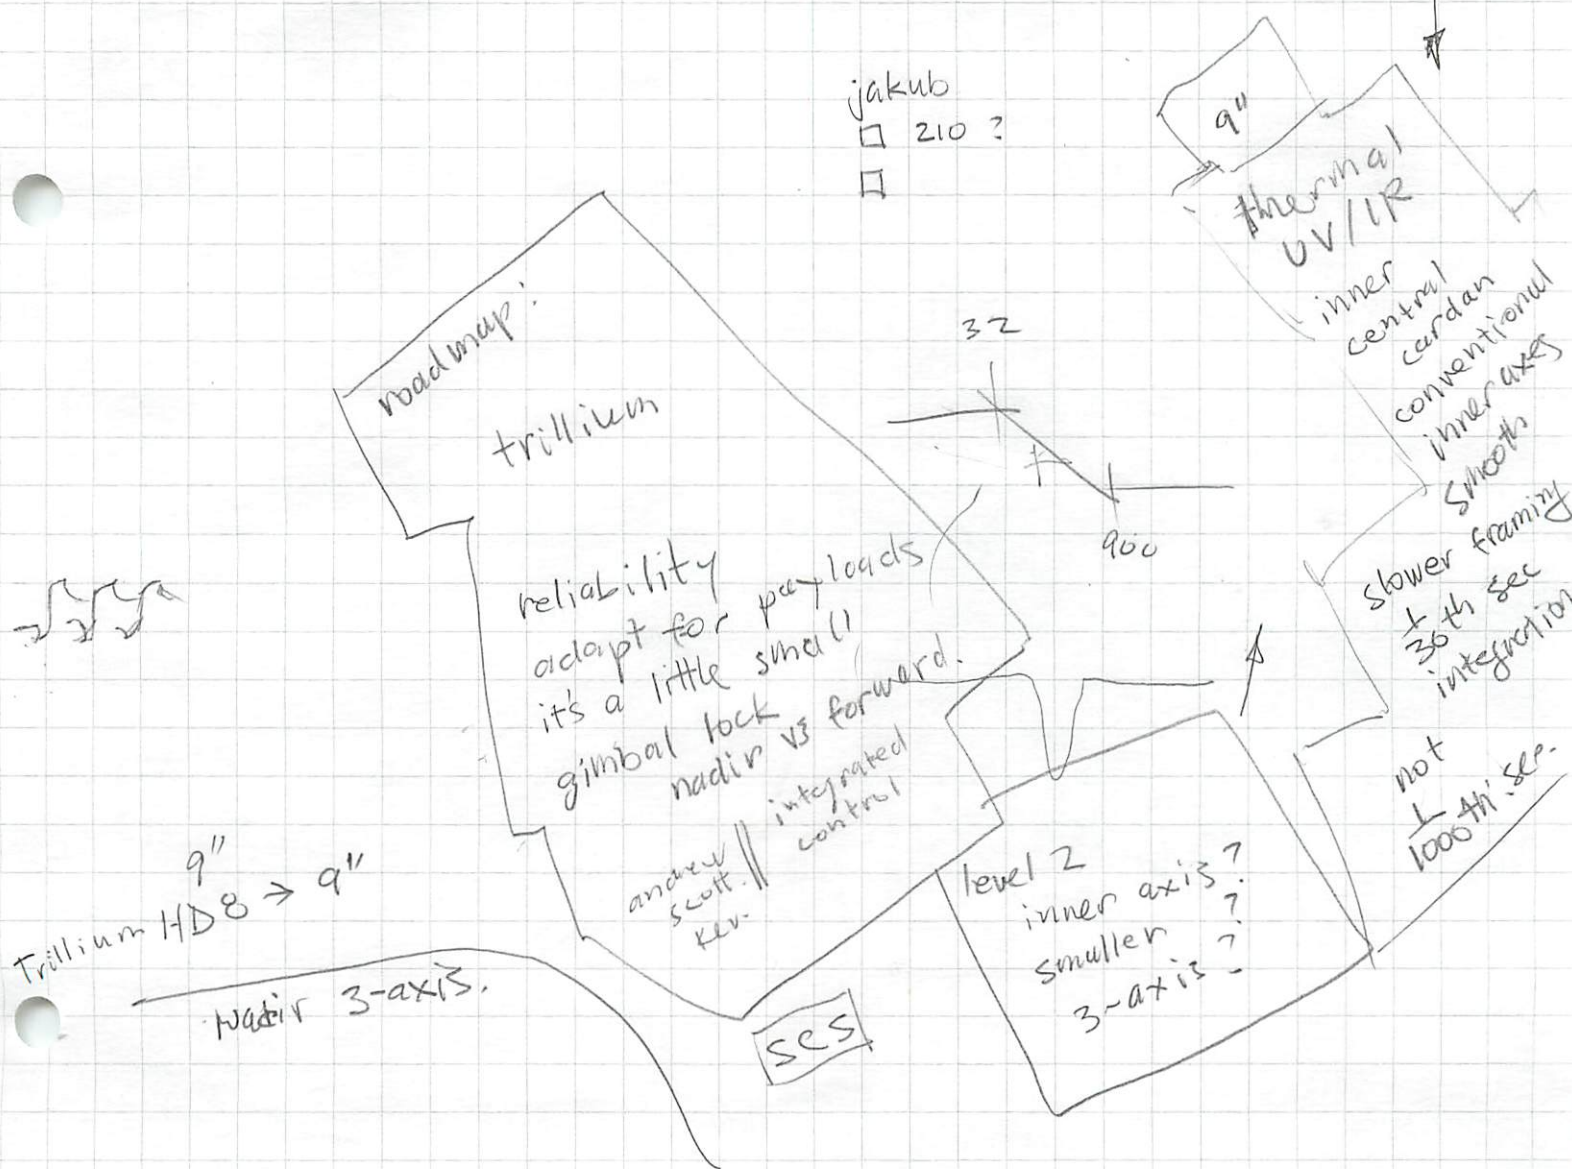 jakub
210 ?
9"
thermal
UV/IR
inner
central
cardan
conventional
inner axes
smooth
slower framing
1/30th sec
integration
not
1/1000th sec.
32
900
roadmap:
trillium
reliability
adapt for payloads
it's a little small
gimbal lock
nadir vs forward.
integrated
control
andrew
scott.
kev.
level 2
inner axis?
smaller ?
3-axis?
9"
Trillium HD8 → 9"
Nadir 3-axis.
SCS